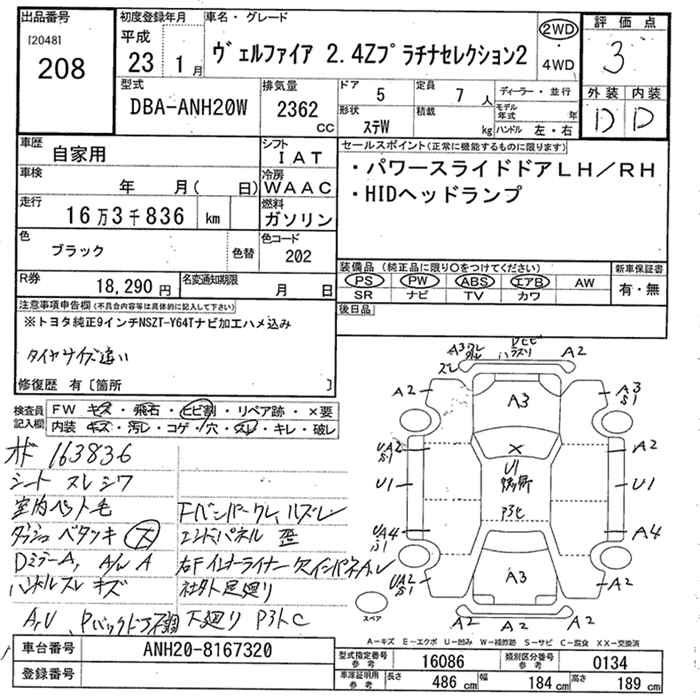 出品番号
[2048]
208
初度登録年月
平成
23 1月
車名・グレード
ヴェルファイア 2.4Zプラチナセレクション2
2WD
・4WD
評価点
3
外装 内装
D D
型式
DBA-ANH20W
排気量
2362 cc
ドア
5
形状
ステW
定員
7人
積載
kg
ディーラー・並行
モデル年式 年
ハンドル 左・右
車歴
自家用
シフト
IAT
車検
年 月( 日)
冷房
WAAC
走行
16万3千836 km
燃料
ガソリン
色
ブラック
色替
色コード
202
R券
18,290円
名変通知期限
月 日
セールスポイント(正常に機能するものに限ります)
・パワースライドドアLH/RH
・HIDヘッドランプ
装備品(純正品に限り○をつけてください)
PS・PW・ABS・エアB・AW
SR ナビ TV カワ
新車保証書
有・無
後日品
注意事項申告欄(不具合内容等は具体的に記入して下さい)
※トヨタ純正9インチNSZT-Y64Tナビ加工ハメ込み
タイヤサイズ違い
修復歴 有〔箇所 〕
検査員記入欄
FW キズ・飛石・ヒビ割・リペア跡・×要
内装 キズ・汚レ・コゲ・穴・スレ・キレ・破レ
163836
シート スレ シワ
室内ペット毛
ダッシュ ベタツキ 大
Dミラー A,
ハンドルスレ キズ
Fバンパークレ,ハズレ
エンドパネル 歪
社外足廻り
下廻り
A2
A3
A2
A3
S1
A3
UA2
S1
X
A2
U1
U1
U1
UA4
S1
A4
UA2
S1
A3
A2
A2
スペア
A2
A-キズ E-エクボ U-凹み W-補修跡 S-サビ C-腐食 XX-交換済
車台番号
ANH20-8167320
登録番号
型式指定番号
参考
16086
類別区分番号
参考
0134
車庫証明用
参考
長さ 486 cm
幅 184 cm
高さ 189 cm